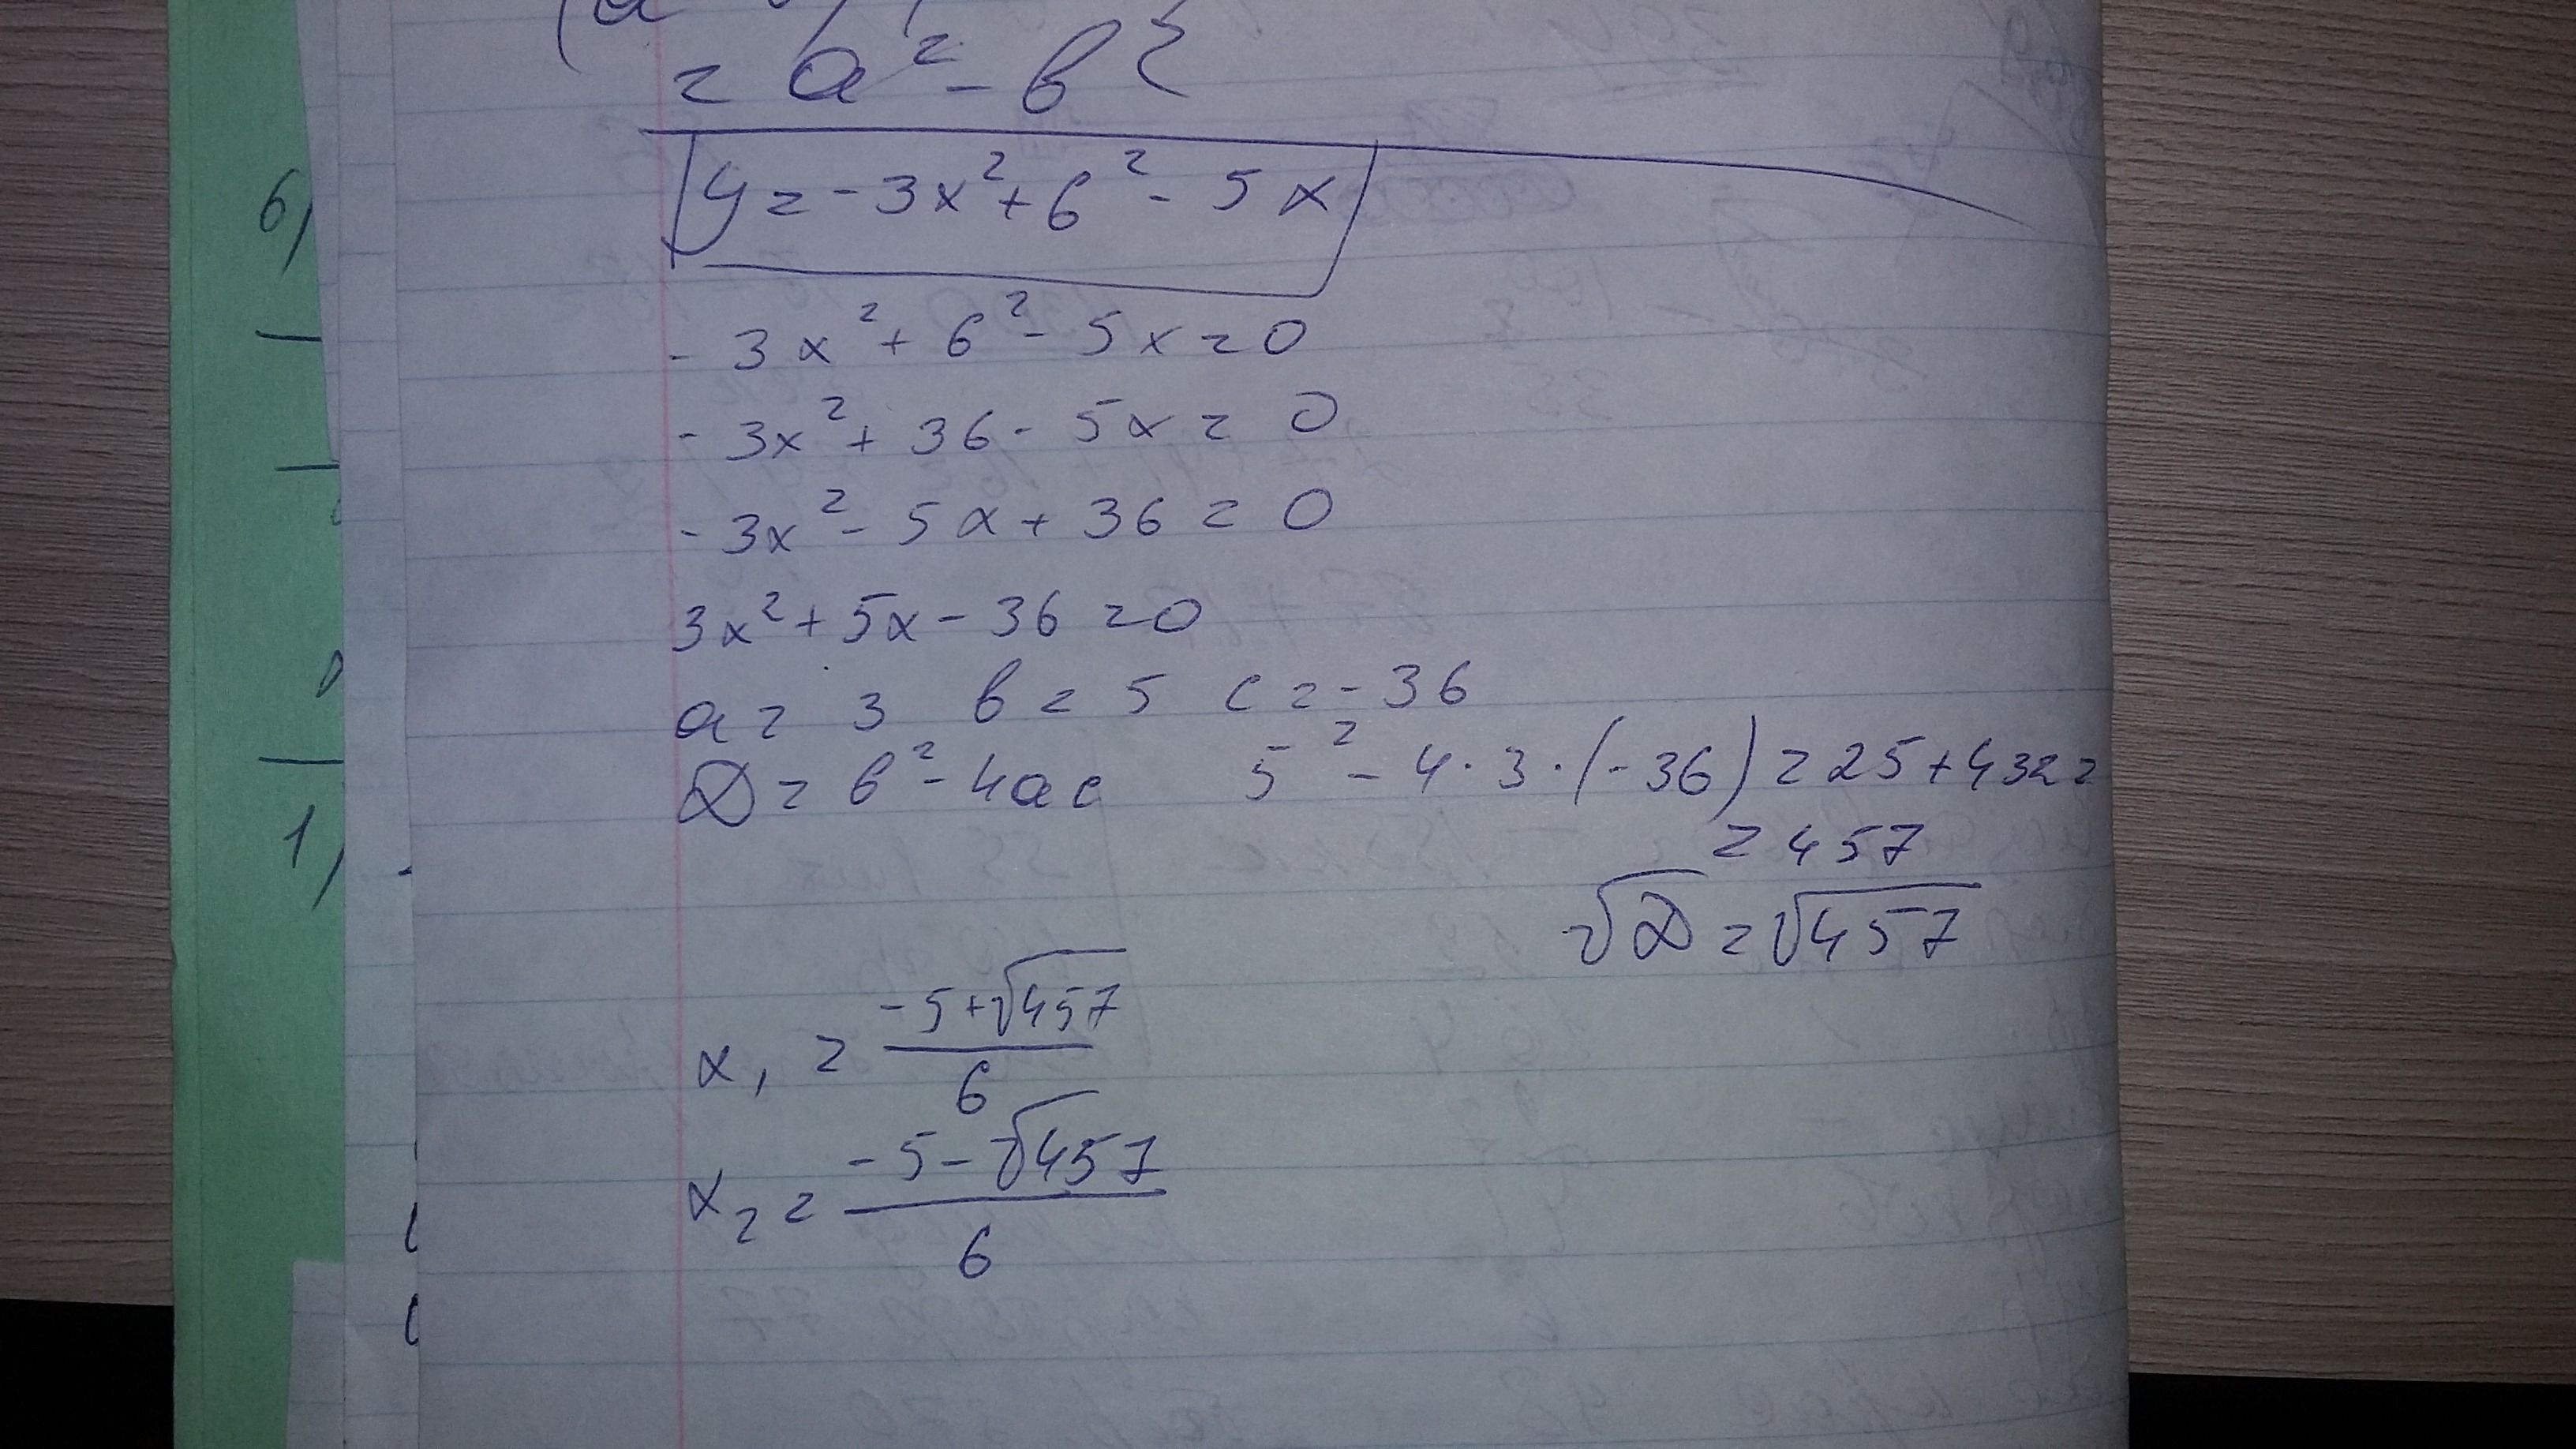 = a² - b²
y = -3x² + 6² - 5x
-3x² + 6² - 5x = 0
-3x² + 36 - 5x = 0
-3x² - 5x + 36 = 0
3x² + 5x - 36 = 0
a = 3 b = 5 c = -36
D = b² - 4ac 5² - 4·3·(-36) = 25 + 432 =
= 457
√D = √457
x₁ = (-5+√457)/6
x₂ = (-5-√457)/6
6)
1)